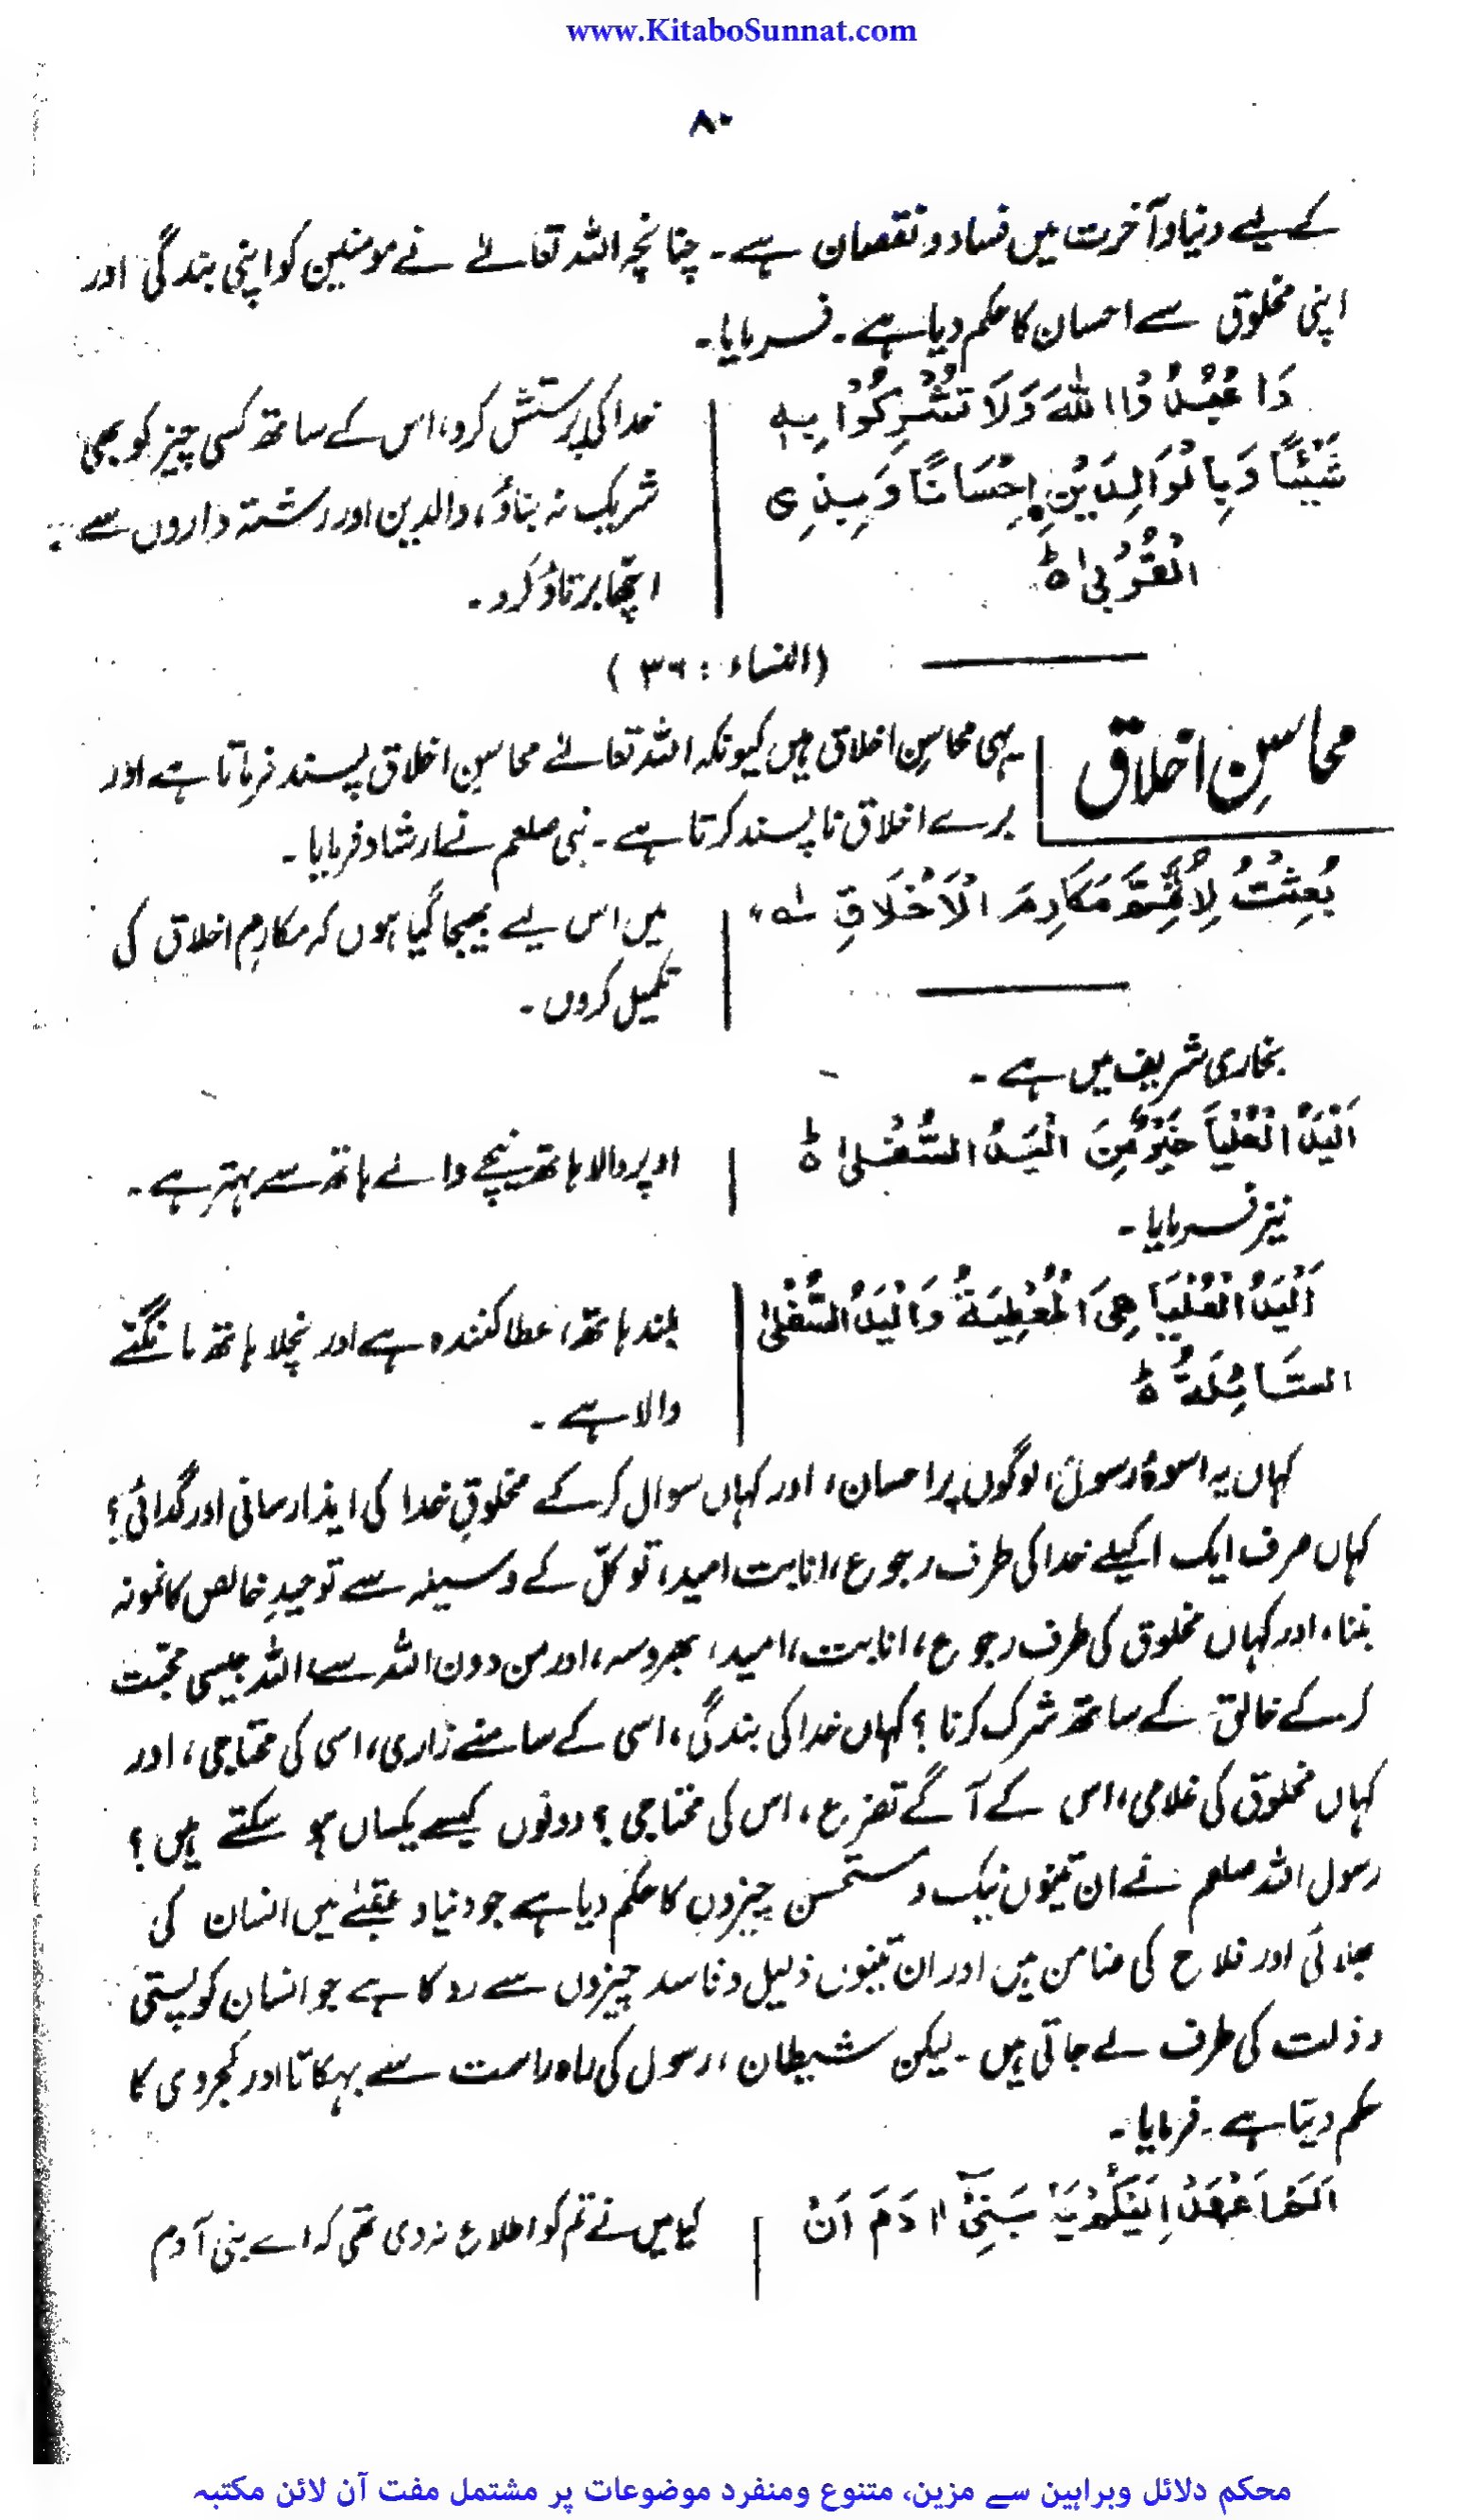 www.KitaboSunnat.com
۸۰
کے لیے دنیا و آخرت میں فساد و نقصان ہے۔ چنانچہ اللہ تعالےٰ نے مومنین کو اپنی بندگی اور
اپنی مخلوق سے احسان کا حکم دیا ہے۔ فرمایا۔
وَاعْبُدُوا اللّٰهَ وَلَا تُشْرِكُوْا بِهٖ
شَيْئًا وَّبِالْوَالِدَيْنِ اِحْسَانًا وَّبِذِی
الْقُرْبٰی ہ
خدا کی پرستش کرو، اس کے ساتھ کسی چیز کو بھی
شریک نہ بناؤ، والدین اور رشتہ داروں سے
اچھا برتاؤ کرو۔
(النساء : ۳۶)
محاسنِ اخلاق
یہی محاسنِ اخلاق ہیں کیونکہ اللہ تعالےٰ محاسنِ اخلاق پسند فرماتا ہے اور
برے اخلاق ناپسند کرتا ہے۔ نبی صلعم نے ارشاد فرمایا۔
بُعِثْتُ لِاُتَمِّمَ مَكَارِمَ الْاَخْلَاقِ لہ،
میں اس لیے بھیجا گیا ہوں کہ مکارمِ اخلاق کی
تکمیل کروں۔
بخاری شریف میں ہے۔
اَلْيَدُ الْعُلْيَا خَيْرٌ مِّنَ الْيَدِ السُّفْلٰی ہ
اوپر والا ہاتھ نیچے والے ہاتھ سے بہتر ہے۔
نیز فرمایا۔
اَلْيَدُ الْعُلْيَا هِیَ الْمُعْطِيَةُ وَالْيَدُ السُّفْلٰی
السَّائِلَةُ ہ
بلند ہاتھ، عطا کنندہ ہے اور نچلا ہاتھ مانگنے
والا ہے۔
کہاں یہ اسوۂ رسول، لوگوں پر احسان، اور کہاں سوال کر کے مخلوقِ خدا کی ایذا رسانی اور گدائی؟
کہاں صرف ایک اکیلے خدا کی طرف رجوع، انابت امید، توکل کے وسیلہ سے توحیدِ خالص کا نمونہ
بننا، اور کہاں مخلوق کی طرف رجوع، انابت، امید، بھروسہ، اور من دون اللہ سے اللہ جیسی محبت
کر کے خالق کے ساتھ شرک کرنا؟ کہاں خدا کی بندگی، اسی کے سامنے زاری، اسی کی محتاجی، اور
کہاں مخلوق کی غلامی، اس کے آگے تضرع، اس کی محتاجی؟ دونوں کیسے یکساں ہو سکتے ہیں؟
رسول اللہ صلعم نے ان تینوں نیک و مستحسن چیزوں کا حکم دیا ہے جو دنیا و عقبےٰ میں انسان کی
بھلائی اور فلاح کی ضامن ہیں اور ان تینوں ذلیل و فاسد چیزوں سے روکا ہے جو انسان کو پستی
و ذلت کی طرف لے جاتی ہیں۔ لیکن شیطان، رسول کی راہ راست سے بہکاتا اور کجروی کا
حکم دیتا ہے۔ فرمایا۔
اَلَمْ اَعْهَدْ اِلَيْكُمْ يٰبَنِیْٓ اٰدَمَ اَنْ
کیا میں نے تم کو اطلاع نہ دی تھی کہ اے بنی آدم
محکم دلائل وبراہین سے مزین، متنوع ومنفرد موضوعات پر مشتمل مفت آن لائن مکتبہ